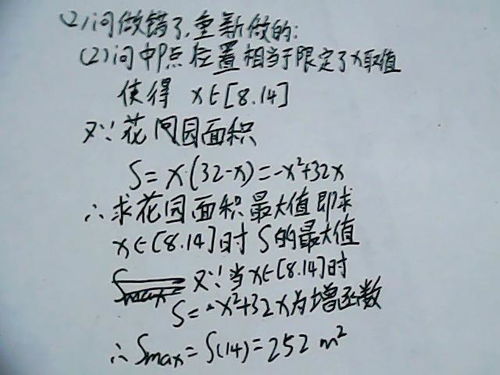 (2)问做错了,重新做的:
(2)问中P点位置相当于限定了x取值
使得 x∈[8.14]
又∵花园面积
S=x(32-x)=-x²+32x
∴求花园面积最大值即求
x∈[8.14]时S的最大值
Smax 又∵当x∈[8.14]时
S=-x²+32x为增函数
∴Smax=S(14)=252 m²